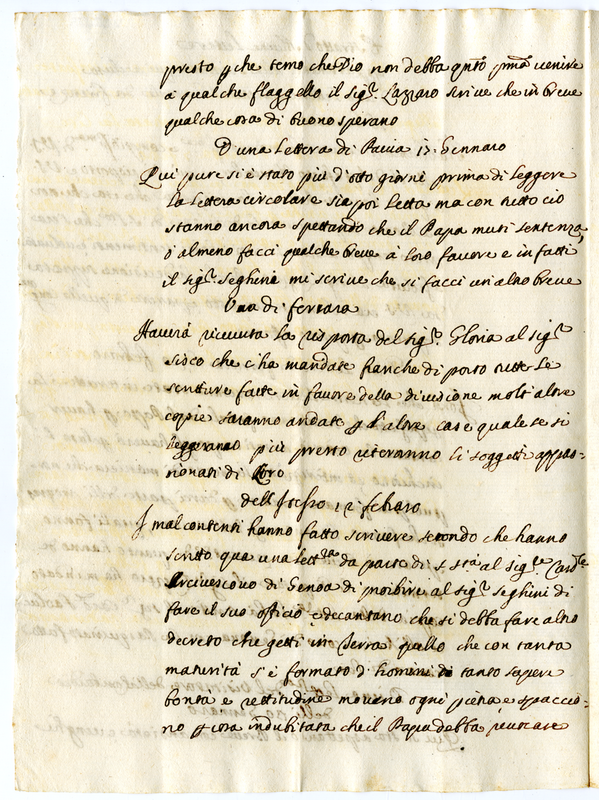 presto p che temo che Dio non debba qnto pma venire
a qualche flaggello il sigr. Lazzaro scrive che in breve
qualche cosa di buono sperano
D'una Lettera di Pavia 17. Gennaro
Qui pure si è stato più d'otto giorni prima di leggere
la lettera circolare sia poi letta ma con tutto ciò
stanno ancora spettando che il Papa muti sentenza,
ò almeno facci qualche breve à loro favore e in fatti
il sigr. Seghini mi scrive che si facci un altro breve
Una di ferrara
Haverà ricevuta la risposta del sigr. Gloria al sigr
che c'ha mandate franche di porto tutte le
scritture fatte in favore della divisione molt'altre
copie saranno andate p l'altre case quale se si
leggeranno più presto irriteranno li soggetti appas-
sionati di loro
dell'istesso 12 febraro
I mal contenti hanno fatto scrivere secondo che hanno
scritto qua una lettra da parte di S. Stà al sigre Cardle
Arcivescovo di Genoa di proibire al sigr Seghini di
fare il suo officio e decantano che si debba fare altro
decreto che getti in Terra quello che con tanta
maturità s'è formato d'homini di tanto sapere
bontà e rettitudine movono ogni pietra e spaccio-
no p cosa indubitata che il Papa debba revocare